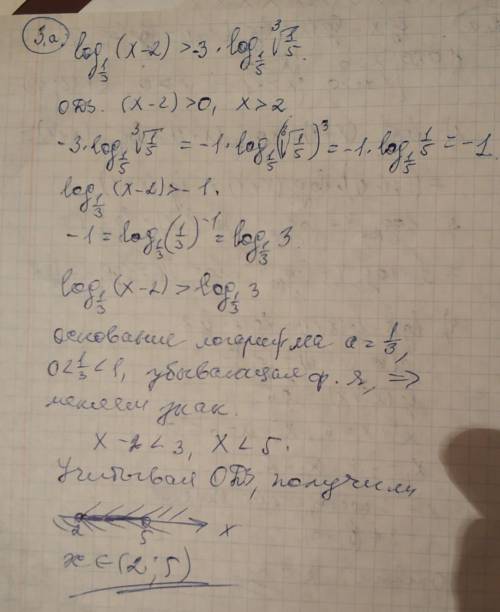 3.а) log_{1/3}(x-2) > -3 · log_{1/5} ∛(1/5).
ОДЗ. (x-2)>0, x>2
-3·log_{1/5} ∛(1/5) = -1·log_{1/5} (∛(1/5))^3 = -1·log_{1/5} 1/5 = -1
log_{1/3}(x-2) > -1.
-1 = log_{1/3}(1/3)^{-1} = log_{1/3} 3.
log_{1/3}(x-2) > log_{1/3} 3
основание логарифма a = 1/3,
0<1/3<1, убывающая ф. я, =>
меняем знак.
x-2<3, x<5.
Учитывая ОДЗ, получили
2 5 x
x∈(2;5)